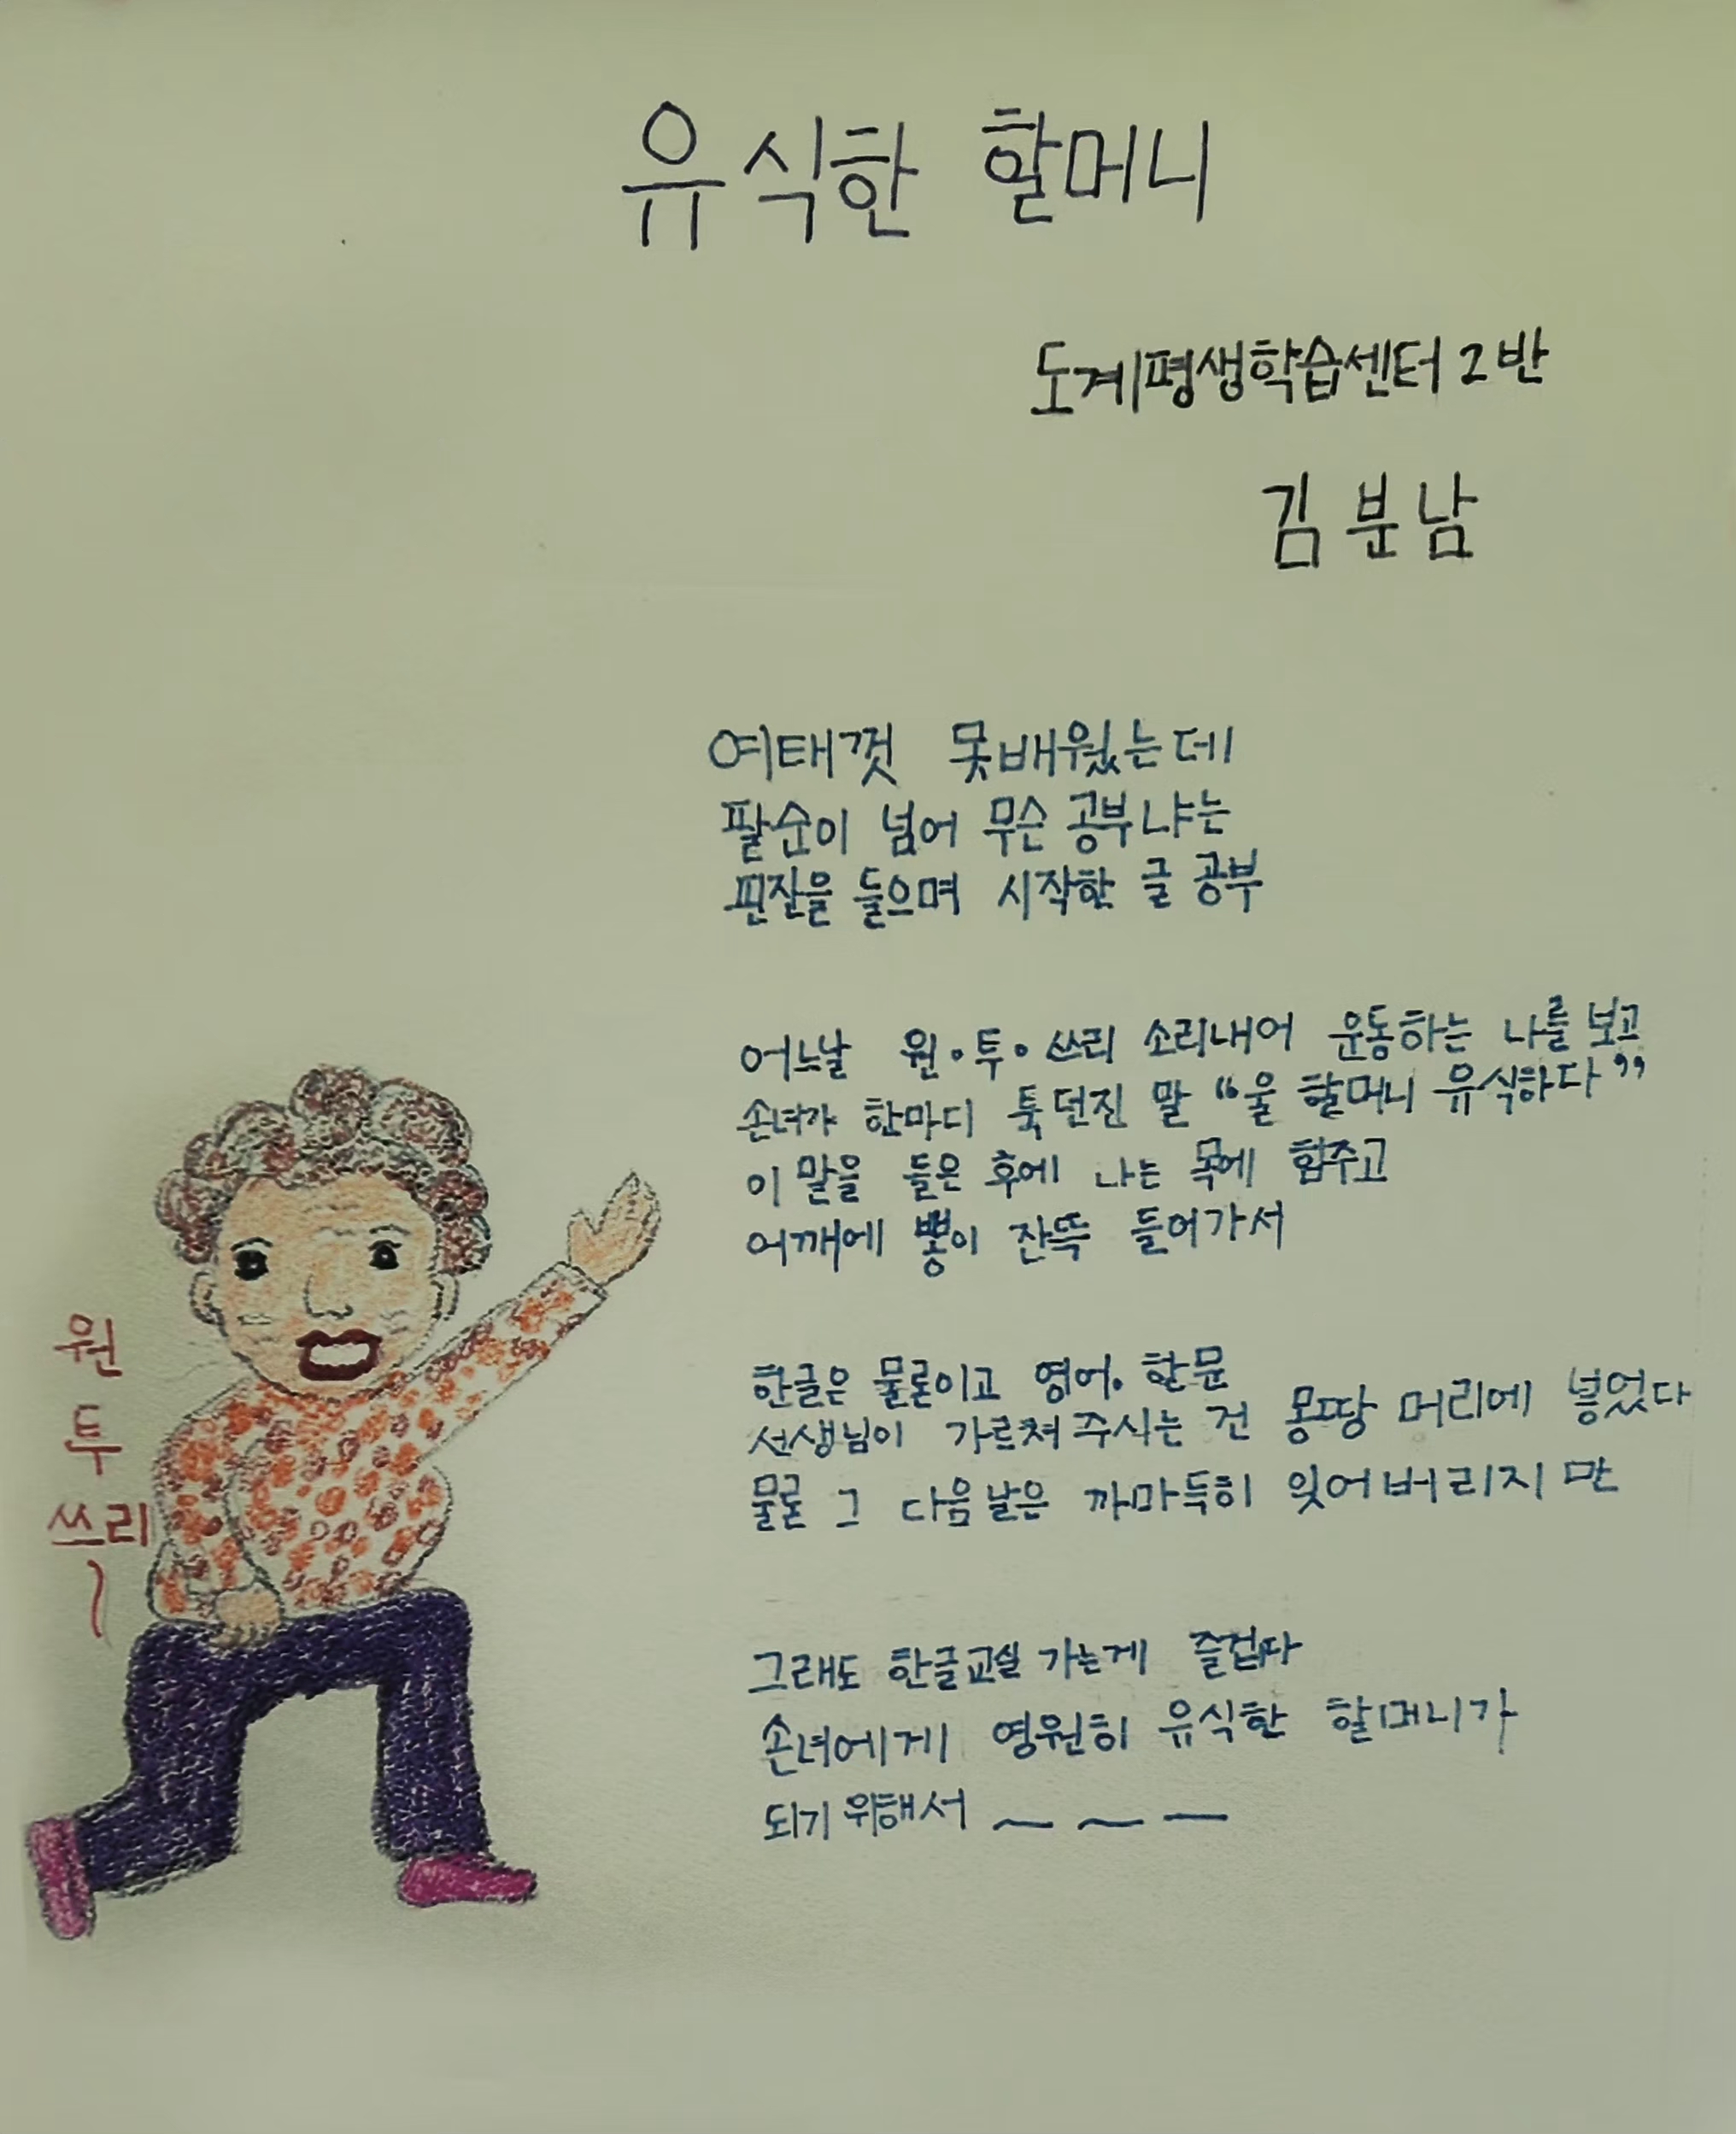 유식한 할머니
도계평생학습센터 2반
김분남
여태껏 못배웠는데
팔순이 넘어 무슨 공부냐는
핀잔을 들으며 시작한 글 공부
어느날 원·투·쓰리 소리내어 운동하는 나를 보고
손녀가 한마디 툭 던진 말 "울 할머니 유식하다"
이 말을 들은 후에 나는 목에 힘주고
어깨에 뽕이 잔뜩 들어가서
한글은 물론이고 영어. 한문
선생님이 가르쳐 주시는 건 몽땅 머리에 넣었다
물론 그 다음날은 까마득히 잊어버리지만
그래도 한글교실 가는게 즐겁다
손녀에게 영원히 유식한 할머니가
되기 위해서 ~ ~ ~
원
투
쓰리~